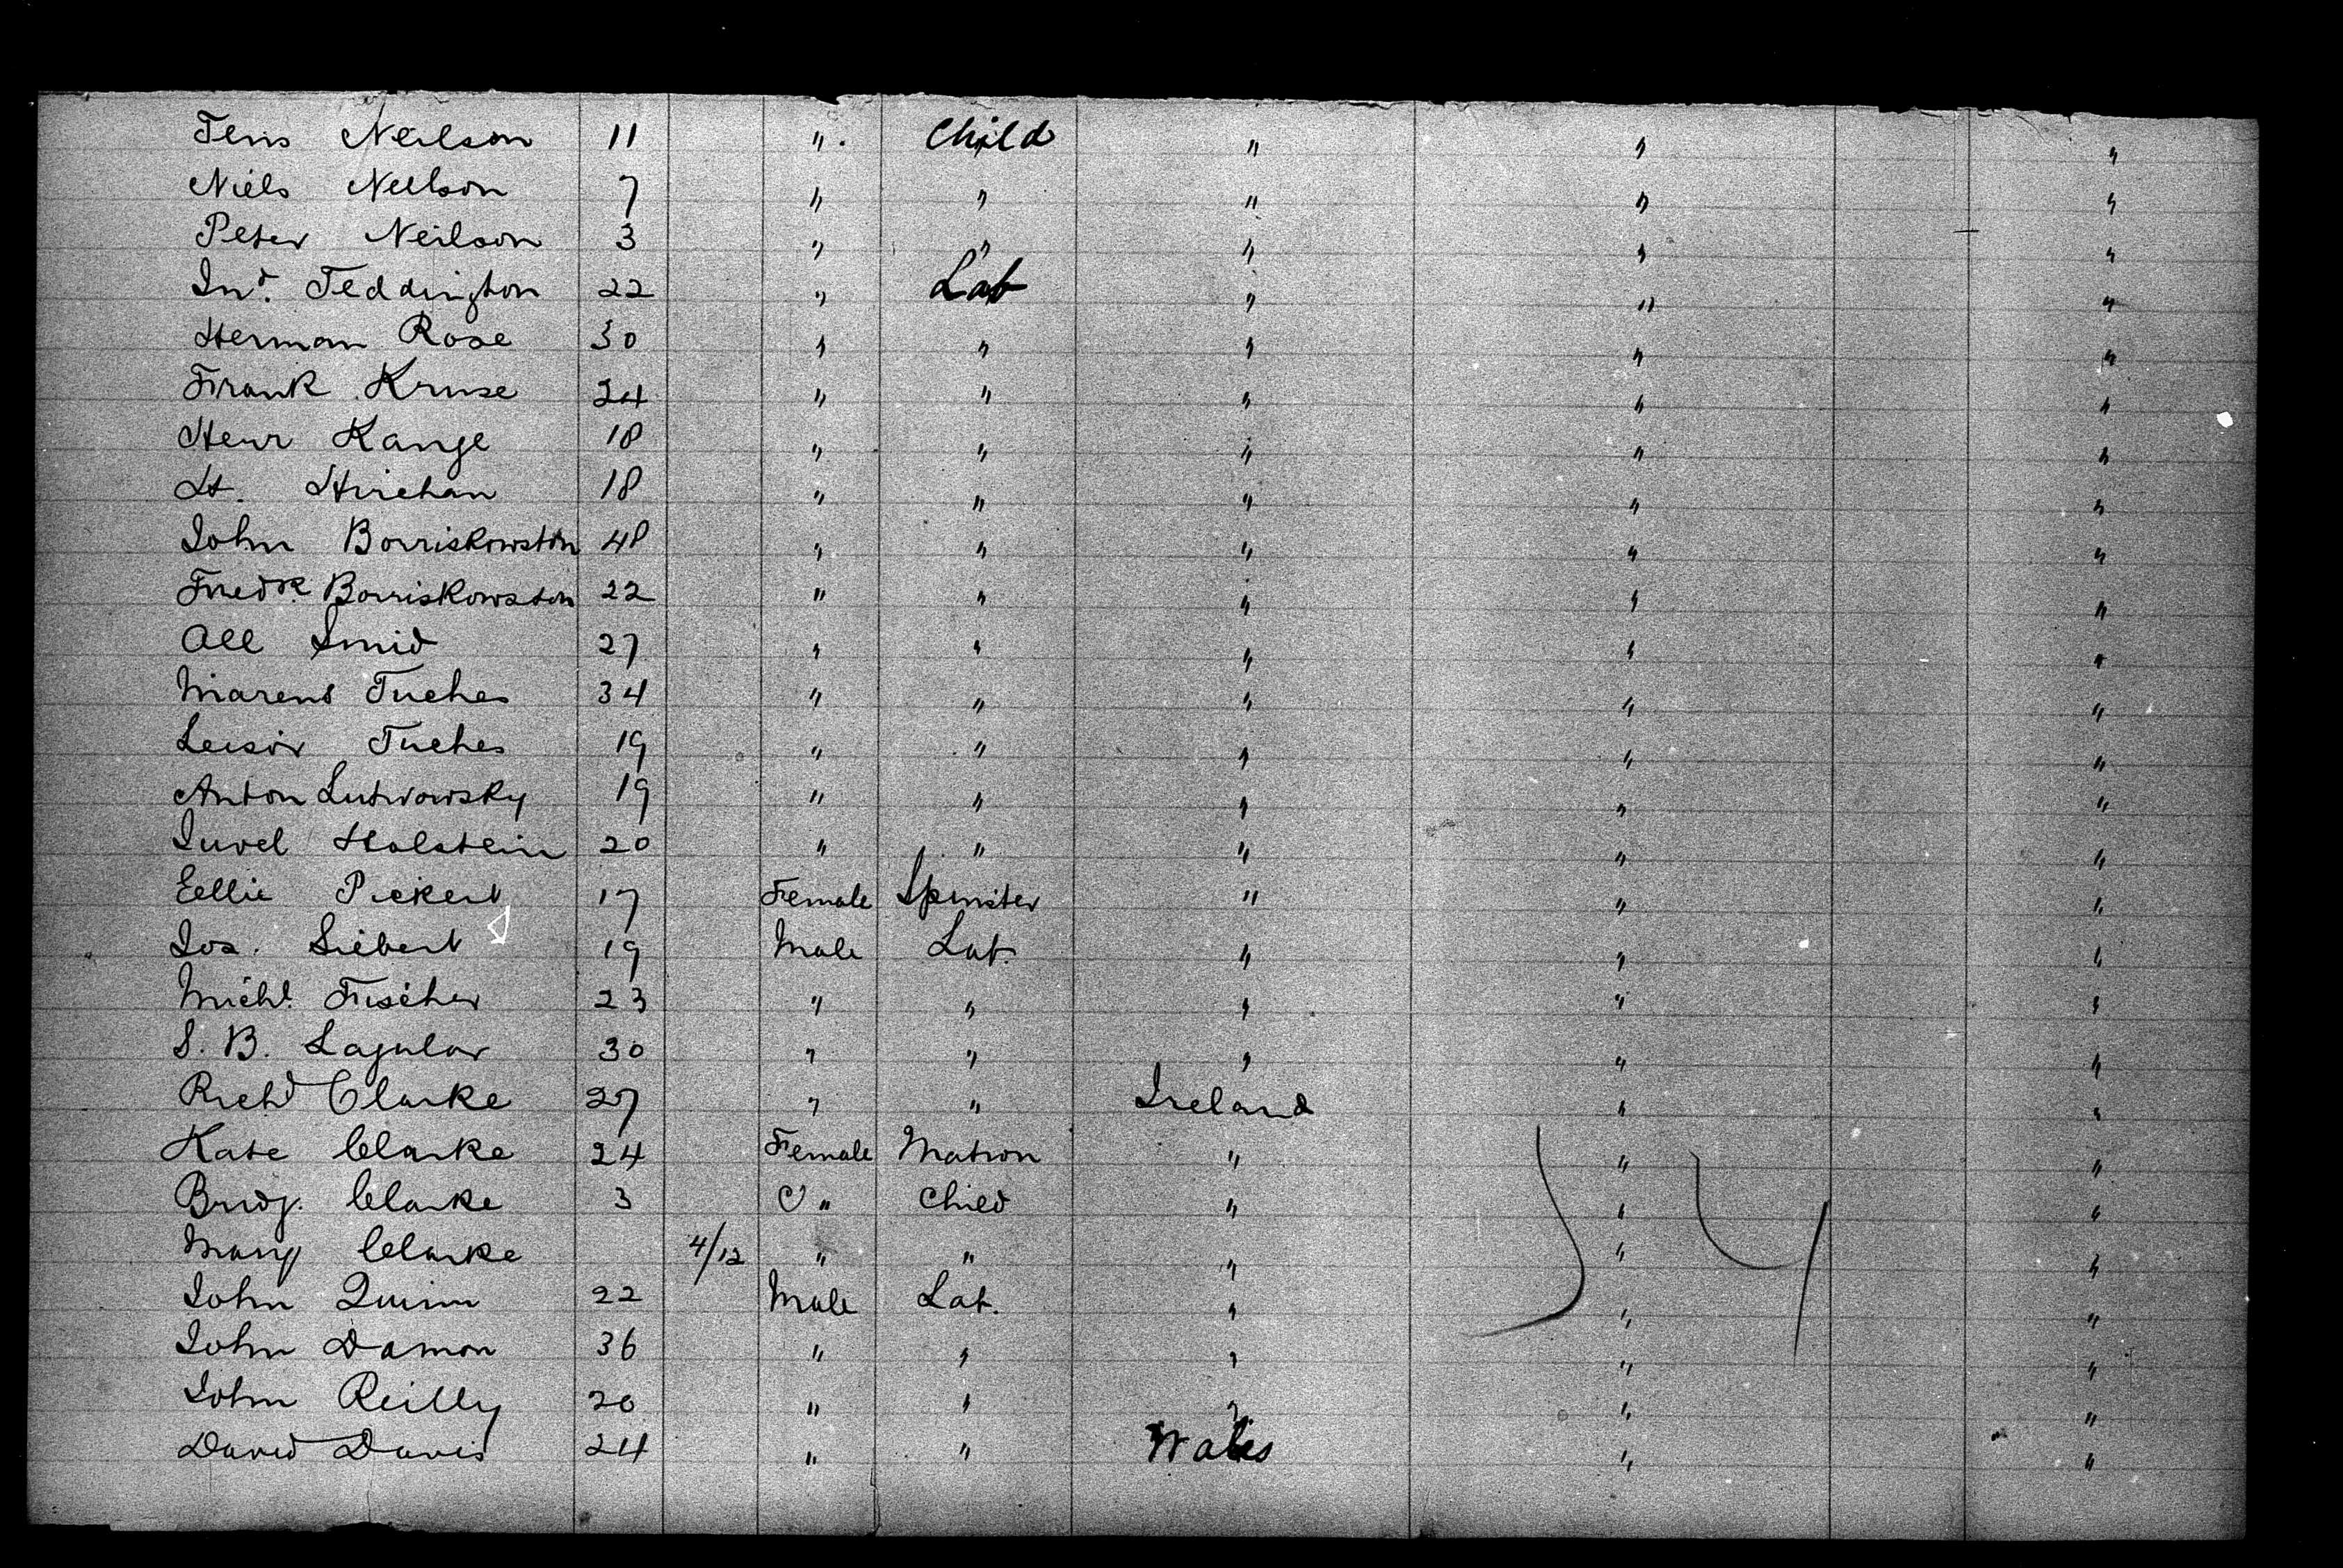 Jens Neilson 11 " Child " " "
Niels Neilson 7 " " " " "
Peter Neilson 3 " " " " "
Jno. Teddington 22 " Lab " " "
Herman Rose 30 " " " " "
Frank Kruse 24 " " " " "
Henr Kange 18 " " " " "
St. Hirehan 18 " " " " "
John Borriskowston 48 " " " " "
Fredk. Borriskowston 22 " " " " "
All Smid 27 " " " " "
Marens Tuches 34 " " " " "
Leisor Tuches 19 " " " " "
Anton Lutwowsky 19 " " " " "
Juvel Holstein 20 " " " " "
Eellie Pickert 17 Female Spinster " " "
Jos. Siebert 19 Male Lab. " " "
Michl. Fischer 23 " " " " "
S. B. Lagular 30 " " " " "
Richd Clarke 27 " " Ireland " "
Kate Clarke 24 Female Matron " " "
Bridg. Clarke 3 " Child " " "
Mary Clarke 4/12 " " " " "
John Quinn 22 Male Lab. " " "
John Damon 36 " " " " "
John Reilly 20 " " " " "
David Davis 24 " " Wales " "